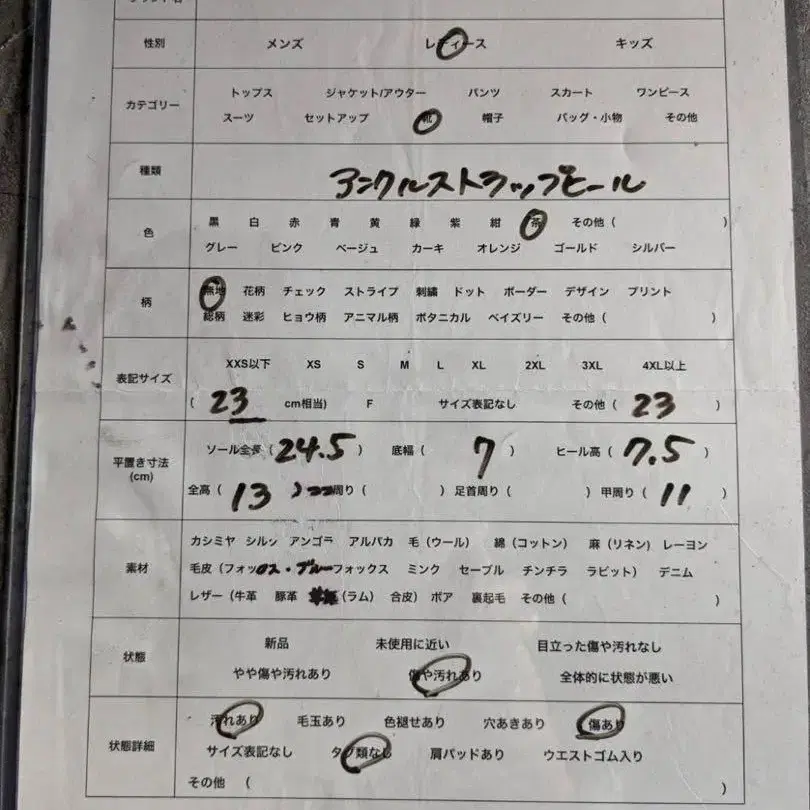 性別 メンズ レディース キッズ
トップス ジャケット/アウター パンツ スカート ワンピース
カテゴリー
スーツ セットアップ 靴 帽子 バッグ・小物 その他
種類 アンクルストラップヒール
黒 白 赤 青 黄 緑 紫 紺 茶 その他 ( )
色
グレー ピンク ベージュ カーキ オレンジ ゴールド シルバー
無地 花柄 チェック ストライプ 刺繍 ドット ボーダー デザイン プリント
柄
総柄 迷彩 ヒョウ柄 アニマル柄 ボタニカル ペイズリー その他 ( )
XXS以下 XS S M L XL 2XL 3XL 4XL以上
表記サイズ
( 23 cm相当) F サイズ表記なし その他 ( 23 )
ソール全長 ( 24.5 ) 底幅 ( 7 ) ヒール高 ( 7.5 )
平置き寸法
(cm)
全高 ( 13 ) 周り ( ) 足首周り ( ) 甲周り ( 11 )
カシミヤ シルク アンゴラ アルパカ 毛 (ウール) 綿 (コットン) 麻 (リネン) レーヨン
素材
毛皮 (フォックス・ブルーフォックス ミンク セーブル チンチラ ラビット) デニム
レザー (牛革 豚革 (ラム) 合皮) ボア 裏起毛 その他 ( )
新品 未使用に近い 目立った傷や汚れなし
状態
やや傷や汚れあり 傷や汚れあり 全体的に状態が悪い
汚れあり 毛玉あり 色褪せあり 穴あきあり 傷あり
状態詳細
サイズ表記なし タグ類なし 肩パッドあり ウエストゴム入り
その他 ( )